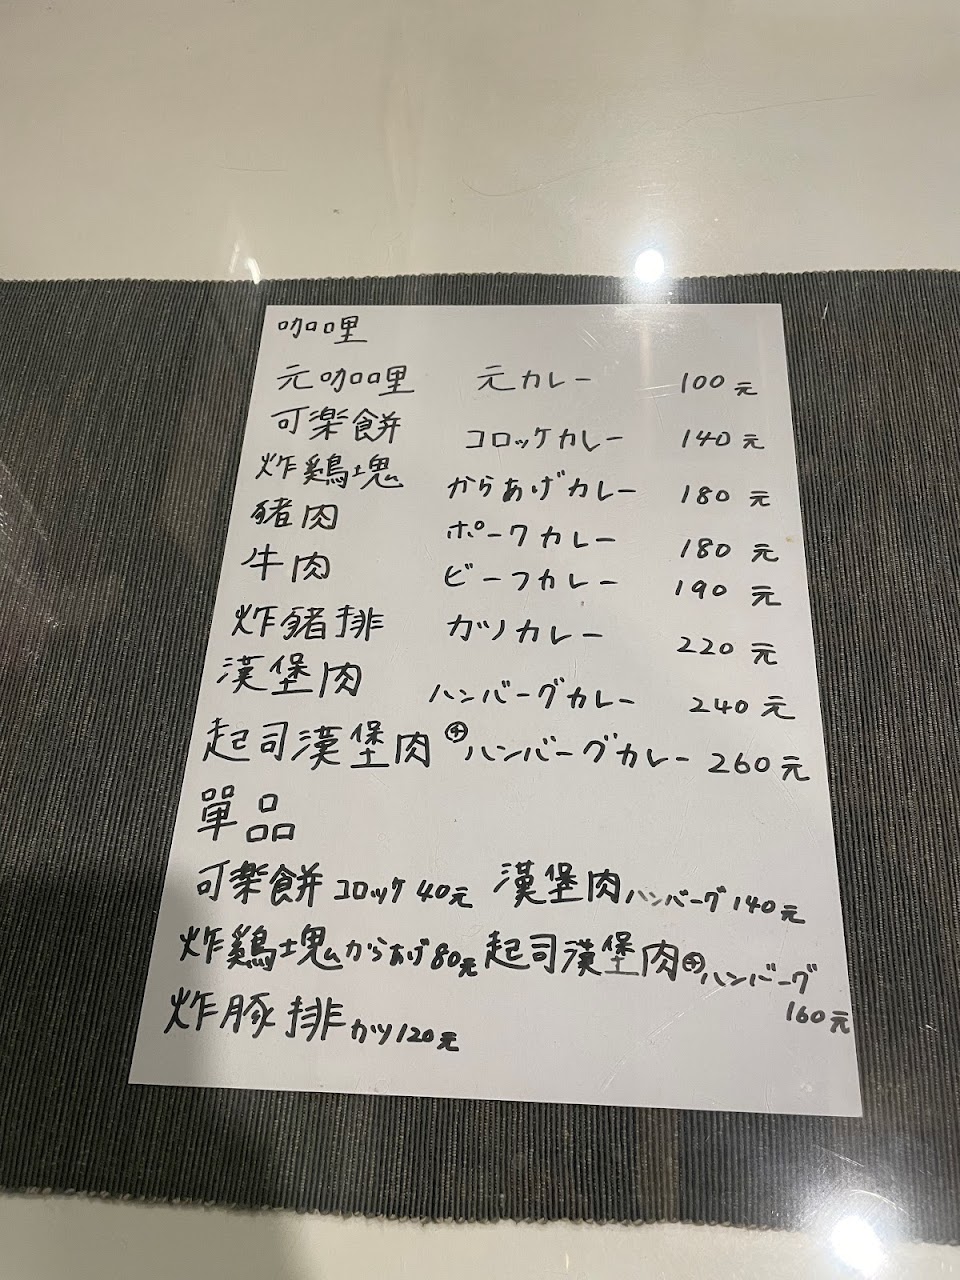 咖哩
元咖哩 元カレー 100元
可楽餅 コロッケカレー 140元
炸鶏塊 からあげカレー 180元
豬肉 ポークカレー 180元
牛肉 ビーフカレー 190元
炸豬排 カツカレー 220元
漢堡肉 ハンバーグカレー 240元
起司漢堡肉 ㋠ハンバーグカレー 260元
單品
可楽餅 コロッケ 40元 漢堡肉 ハンバーグ 140元
炸鶏塊 からあげ 80元 起司漢堡肉 ㋠ハンバーグ
160元
炸豚排 カツ 120元